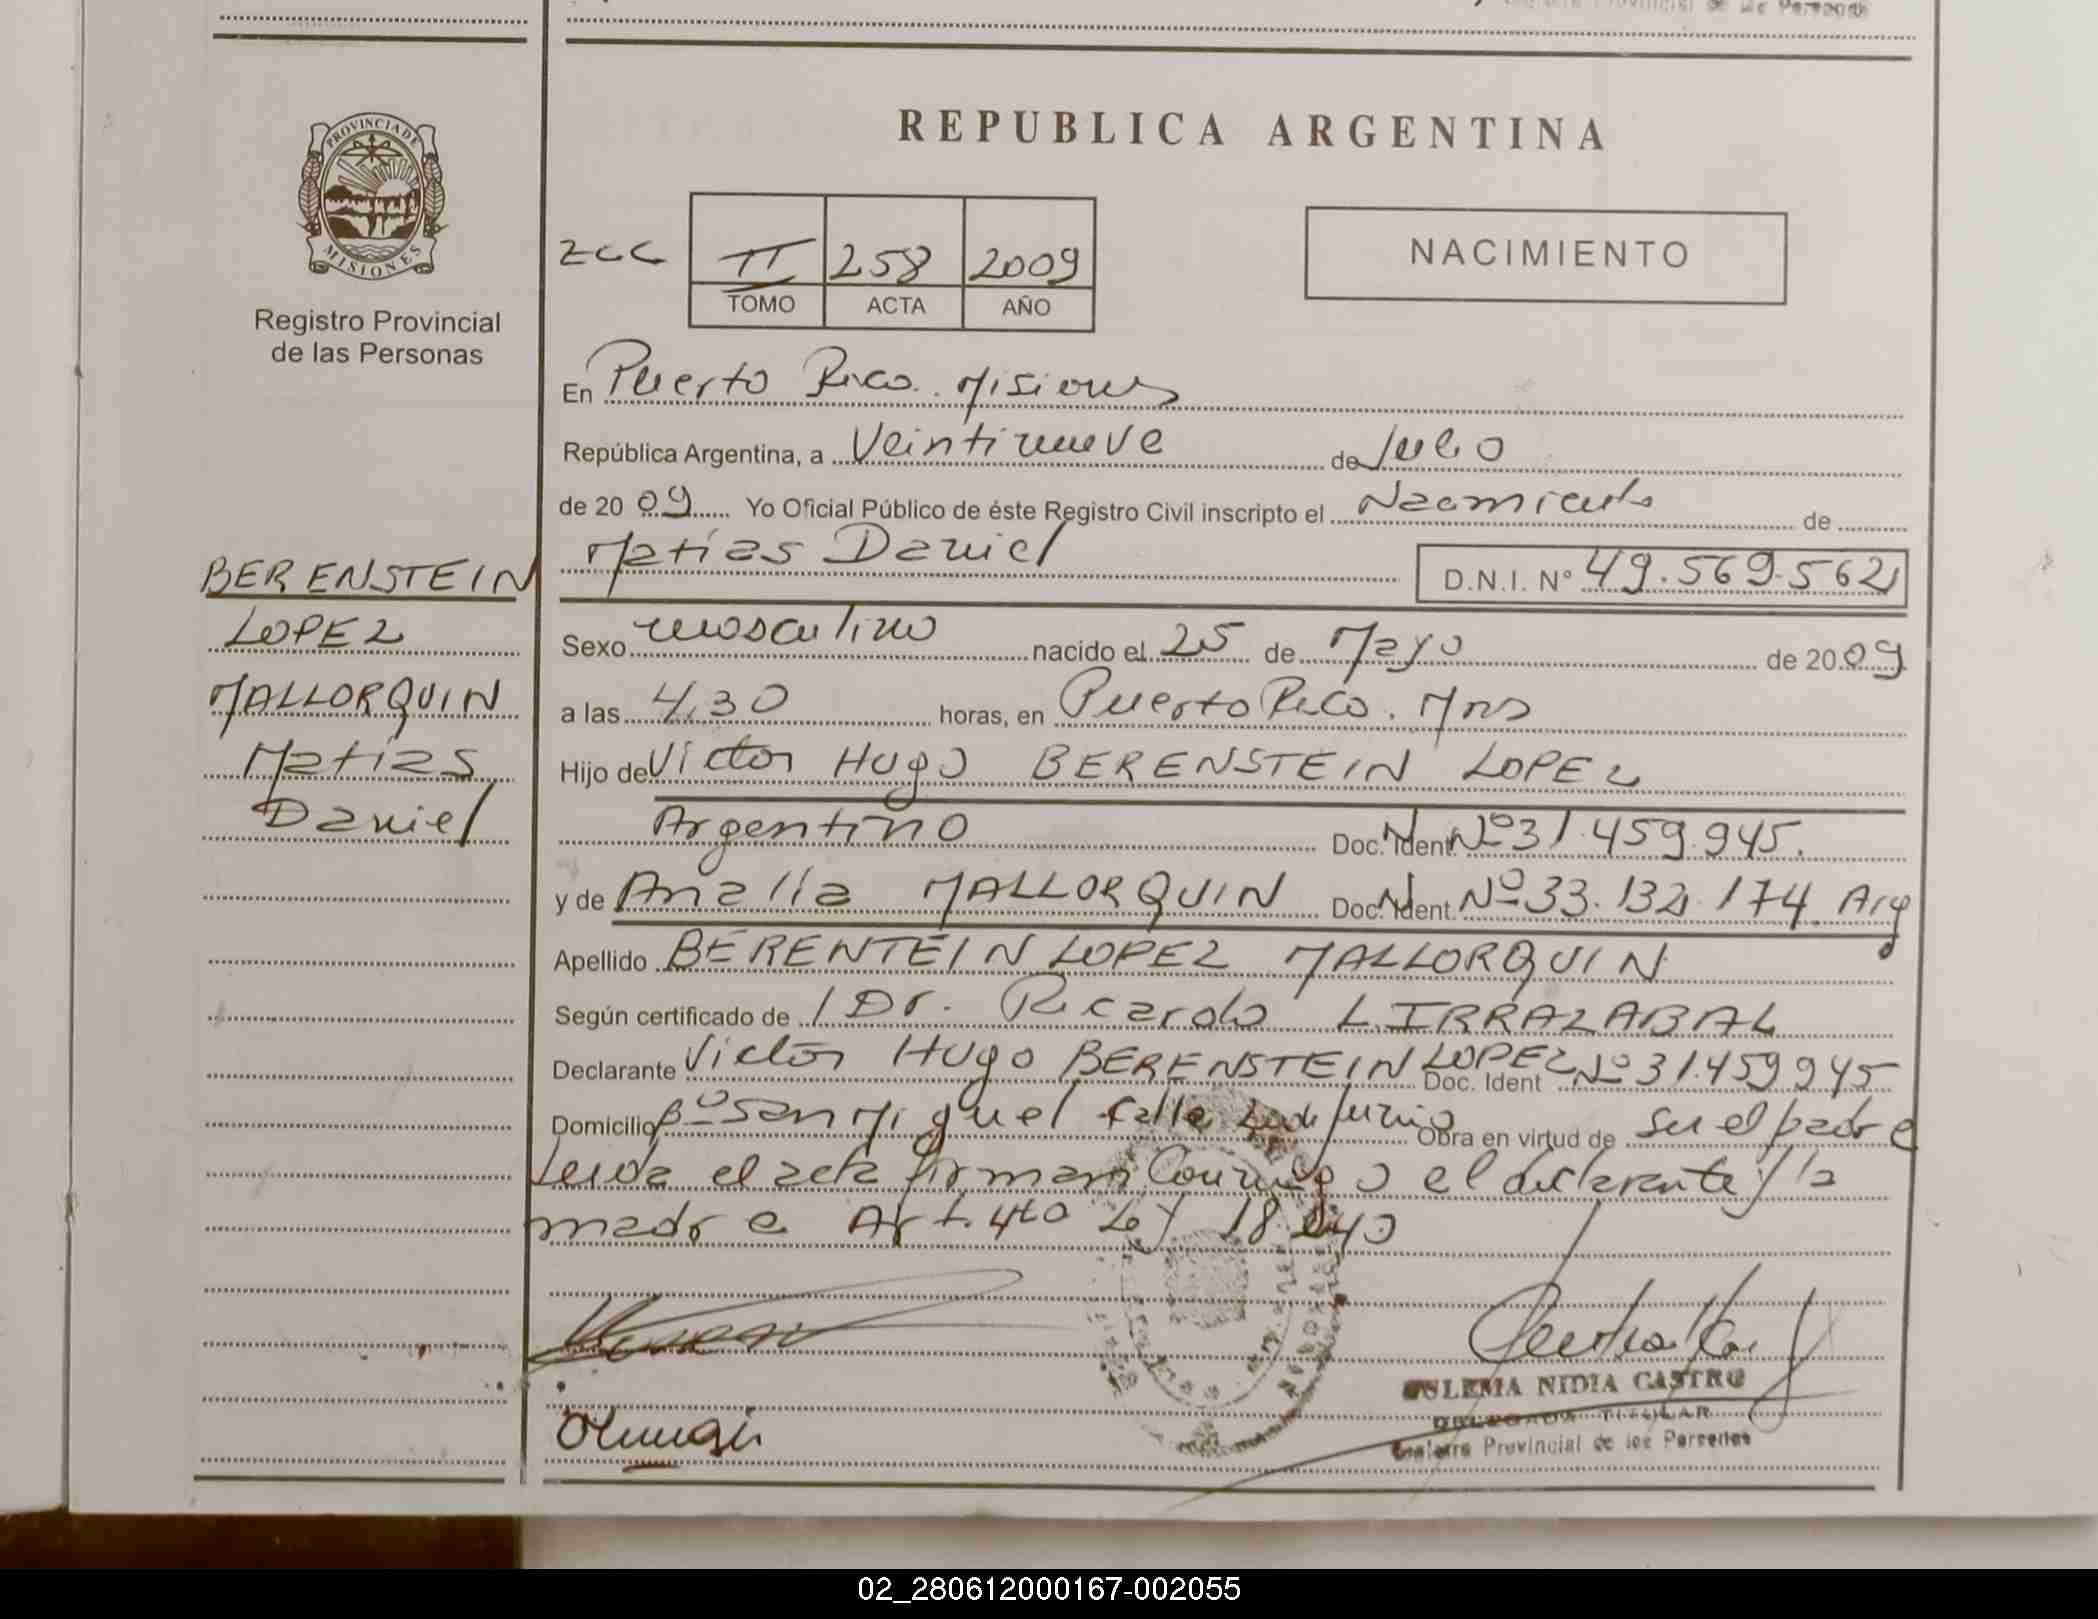 PROVINCIA DE
MISIONES
Registro Provincial
de las Personas
BERENSTEIN
LOPEZ
MALLORQUIN
Matías
Daniel
REPUBLICA ARGENTINA
II 258 2009
TOMO ACTA AÑO
NACIMIENTO
En Puerto Rico. Misiones
República Argentina, a Veintinueve de Julio
de 2009 Yo Oficial Público de éste Registro Civil inscripto el Nacimiento de
Matías Daniel D.N.I. Nº 49.569.562
Sexo masculino nacido el 25 de Mayo de 2009
a las 4,30 horas, en Puerto Rico. Mns
Hijo de Victor Hugo BERENSTEIN LOPEZ
Argentino Doc. N. Ident. Nº 31.459.945.
y de Analía MALLORQUIN Doc. N. Ident. Nº 33.132.174. Arg
Apellido BERENTEIN LOPEZ MALLORQUIN
Según certificado de l Dr. Ricardo L. IRRAZABAL
Declarante Victor Hugo BERENSTEIN LOPEZ Doc. Ident Nº 31.459945
Domicilio Bº San Miguel Calle Obra en virtud de ser el padre
Leida el acta firman conmigo el declarante y la
madre Art. 4to Ley
ZULEMA NIDIA CASTRO
DELEGADA TITULAR
Registro Provincial de las Personas
02_280612000167-002055